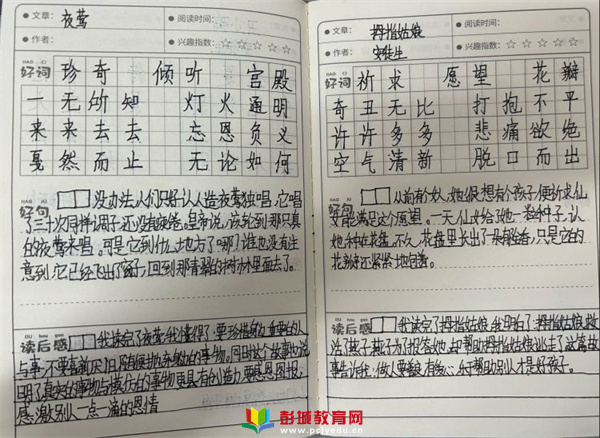 文章：夜莺
阅读时间：
作者：
兴趣指数：☆☆☆☆☆
好词 珍奇 倾听 宫殿
一无所知 灯火通明
来来去去 忘恩负义
戛然而止 无论如何
好句 没办法，人们只好让人造夜莺独唱。它唱
了三十次同样调子，还没有疲倦。皇帝说，该轮到那只真
的夜莺来唱。可是它到什么地方了哪？谁也没有注
意到，它已经飞出了窗子，回到那青翠的树林里面去了。
读后感 我读完了夜莺，我懂得了：要珍惜身边重要的人
与事，不要喜新厌旧，随便抛弃旧的事物。同时这个故事也说
明了真实的事物与模仿的事物更具有创造力，要感恩图报，
感激别人一点一滴的恩情
文章：拇指姑娘
阅读时间：
作者：安徒生
兴趣指数：☆☆☆☆☆
好词 祈求 愿望 花瓣
奇丑无比 打抱不平
许许多多 悲痛欲绝
空气清新 脱口而出
好句 从前有个女人，她很想有个孩子，便祈求仙
女能满足这个愿望。一天，仙女给了她一粒种子，让
她种在花盆，不久，花盆里长出了一朵郁金香，只是它的
花瓣还紧紧地包着。
读后感 我读完了拇指姑娘，我明白了：拇指姑娘救
活了燕子，燕子为了报答她，却帮助拇指姑娘逃走了，这篇故
事告诉我：做人要有爱心，乐于帮助别人才是好孩子。
彭城教育网
www.pcjyedu.cn